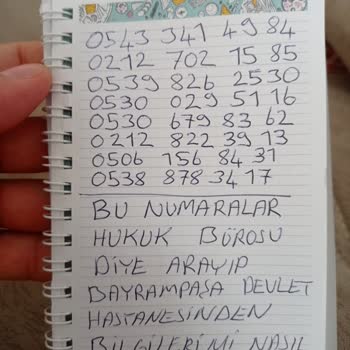 0543 341 49 84
0212 702 15 85
0539 826 2530
0530 029 51 16
0530 679 83 62
0212 822 39 13
0506 156 84 31
0538 878 34 17
BU NUMARALAR
HUKUK BÜROSU
DİYE ARAYIP
BAYRAMPAŞA DEVLET
HASTANESİNDEN
BİLGİLERİMİ NASIL